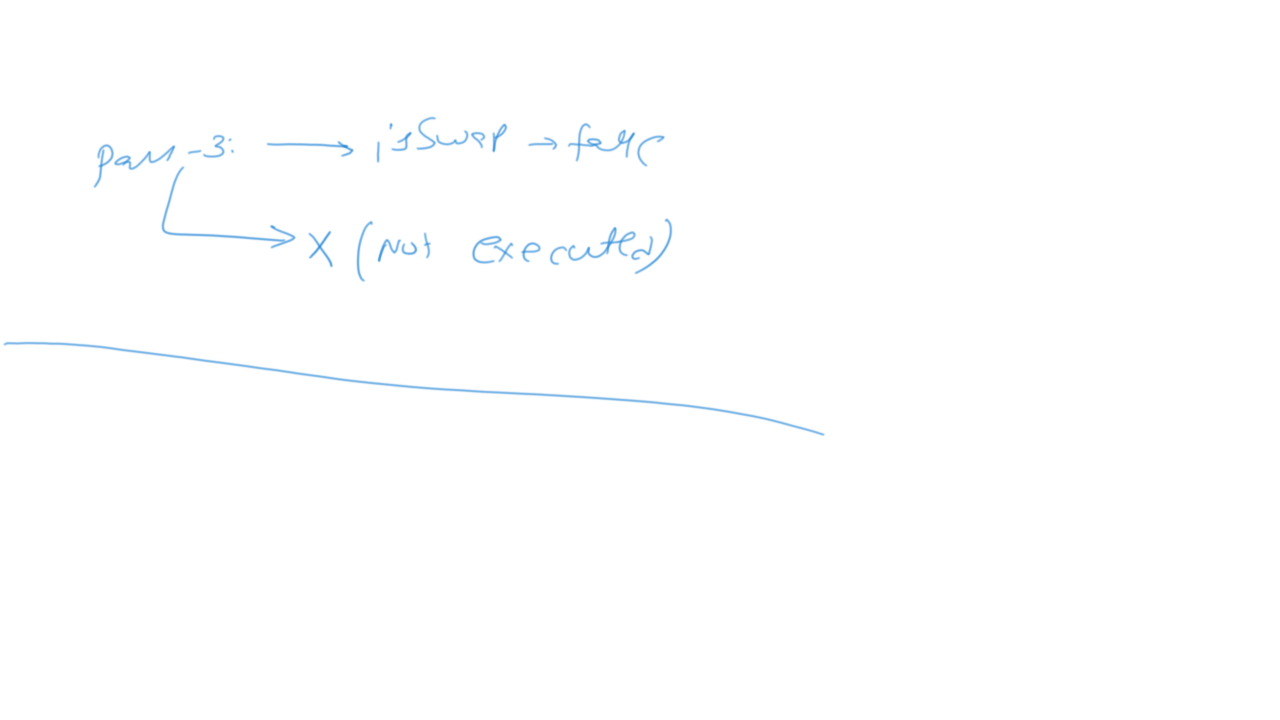 Pass-3: → isSwap → false
X (Not executed)